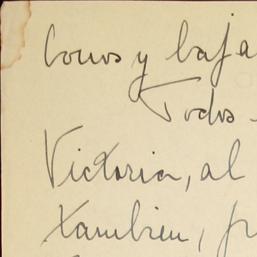 conos y baja
Todos
Victoria, al
también, fr